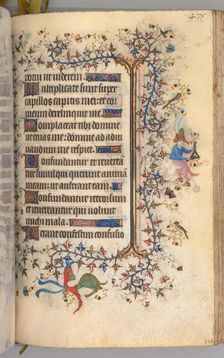 potui ut viderem
Multiplicate sunt super
capillos capitis mei: et cor
meum dereliquit me.
Complaceat tibi domine
ut eruas me domine ad adiu
uandum me respice.
Confundantur et reuerea
tur simul qui querunt anima
meam: ut auferant eam.
Conuertantur retrorsum
et reuereantur qui volunt
michi mala.
Ferant confestim confusio